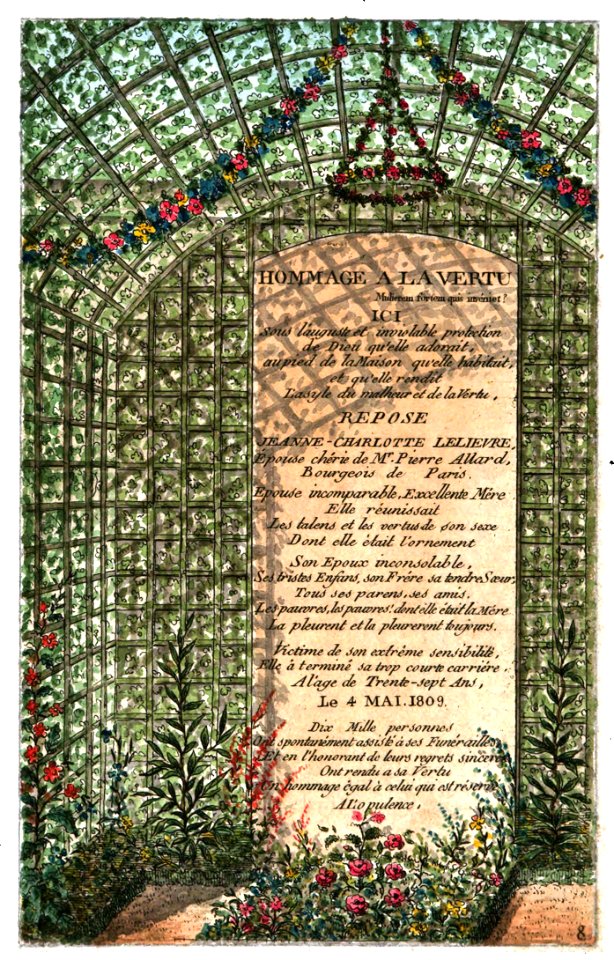 HOMMAGE A LA VERTU
Mulierem fortem quis inveniet?
ICI
Sous l'auguste et inviolable protection
de Dieu qu'elle adorait,
au pied de la Maison qu'elle habitait,
et qu'elle rendit
L'asyle du malheur et de la Vertu,
REPOSE
JEANNE-CHARLOTTE LELIEVRE,
Epouse chérie de Mr. Pierre Allard,
Bourgeois de Paris.
Epouse incomparable, Excellente Mére
Elle réunissait
Les talens et les vertus de son sexe
Dont elle était l'ornement
Son Epoux inconsolable,
Ses tristes Enfans, son Frére sa tendre Sœur,
Tous ses parens, ses amis.
Les pauvres, les pauvres! dont elle était la Mére
La pleurent et la pleurerent toujours.
Victime de son extrême sensibilité,
Elle à terminé sa trop courte carriére,
A l'age de Trente-sept Ans,
Le 4 MAI. 1809.
Dix Mille personnes
Ont spontanément assisté à ses Funérailles
Et en l'honorant de leurs regrets sincères
Ont rendu a sa Vertu
Un hommage égal à celui qui est réservé
A L'opulence.
8